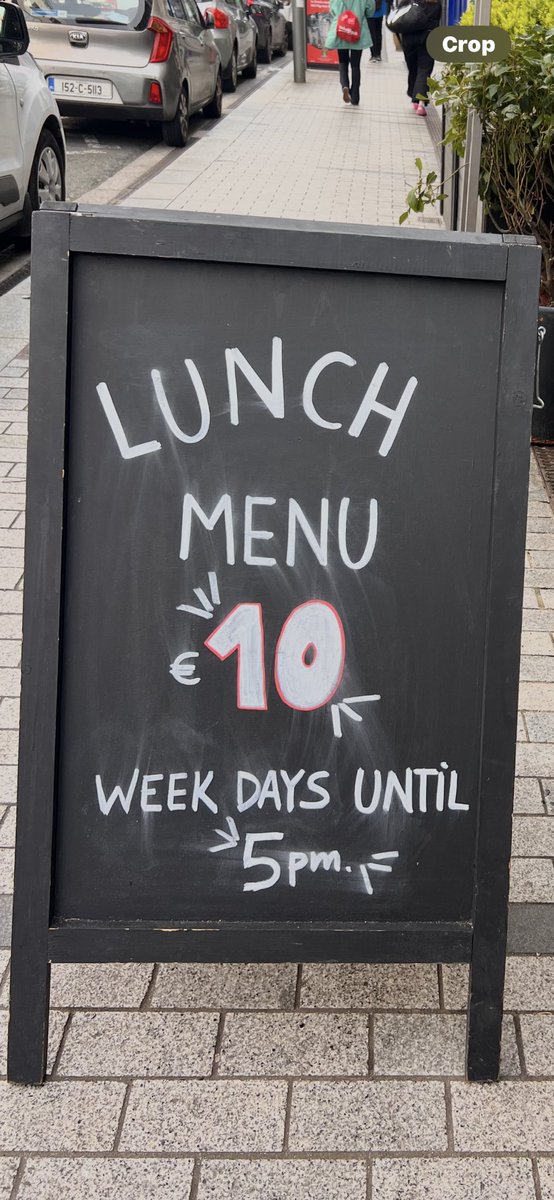 Crop
KIA
152-C-5113
LUNCH
MENU
€10
WEEK DAYS UNTiL
5pm.